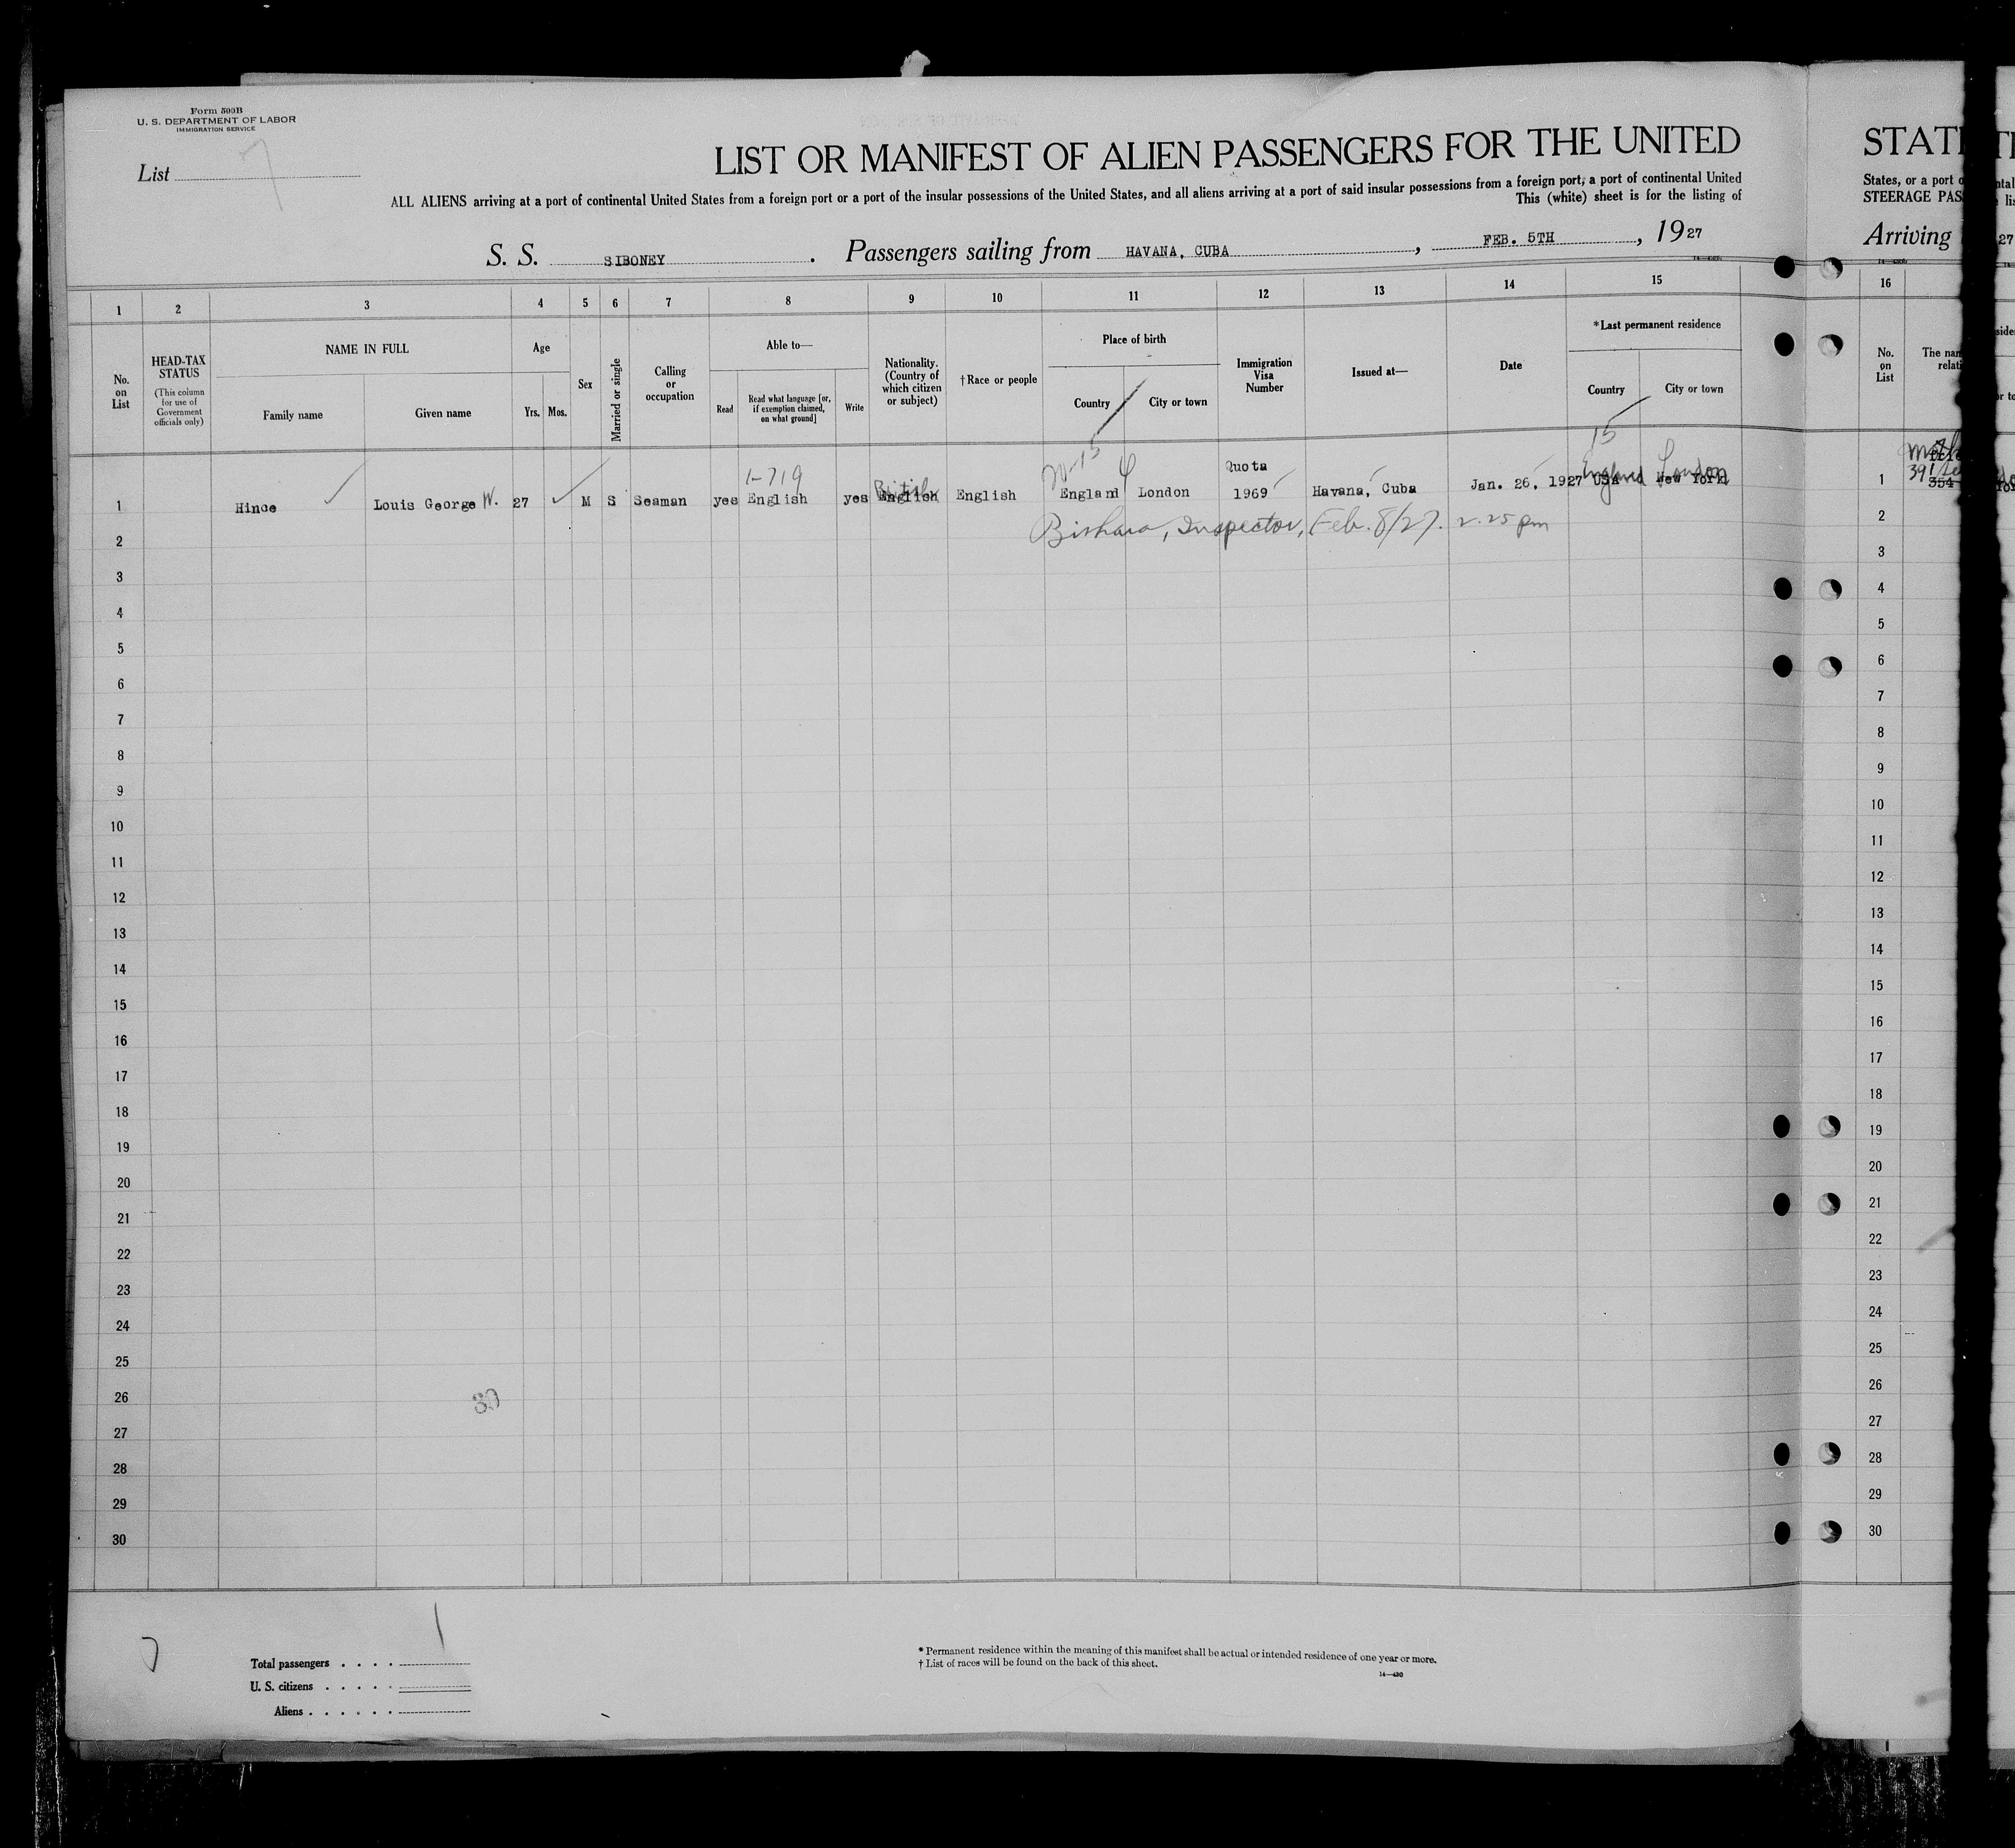 Form 500B
U. S. DEPARTMENT OF LABOR
IMMIGRATION SERVICE
List 7
LIST OR MANIFEST OF ALIEN PASSENGERS FOR THE UNITED
ALL ALIENS arriving at a port of continental United States from a foreign port or a port of the insular possessions of the United States, and all aliens arriving at a port of said insular possessions from a foreign port, a port of continental United
This (white) sheet is for the listing of
S. S. SIBONEY. Passengers sailing from HAVANA, CUBA, FEB. 5TH, 1927
STAT
States, or a port
STEERAGE PAS
Arriving
1 2 3 4 5 6 7 8 9 10 11 12 13 14 15 16
No. on List
HEAD-TAX STATUS
(This column for use of Government officials only)
NAME IN FULL
Family name
Given name
Age
Yrs. Mos.
Sex
Married or single
Calling or occupation
Able to—
Read
Read what language [or, if exemption claimed, on what ground]
Write
Nationality. (Country of which citizen or subject)
†Race or people
Place of birth
Country
City or town
Immigration Visa Number
Issued at—
Date
*Last permanent residence
Country
City or town
No. on List
The nam
relati
15
W-15 4
1-719
Quota
1 Hince Louis George W. 27 M S Seaman yes English yes English British English England London 1969 Havana, Cuba Jan. 26, 1927 USA England New York London 1
391
354
Bishara, Inspector, Feb. 8/27. 2.25 pm
2 2
3 3
4 4
5 5
6 6
7 7
8 8
9 9
10 10
11 11
12 12
13 13
14 14
15 15
16 16
17 17
18 18
19 19
20 20
21 21
22 22
23 23
24 24
25 25
26 26
30
27 27
28 28
29 29
30 30
1
7
Total passengers
U. S. citizens
Aliens
* Permanent residence within the meaning of this manifest shall be actual or intended residence of one year or more.
† List of races will be found on the back of this sheet.
14—430